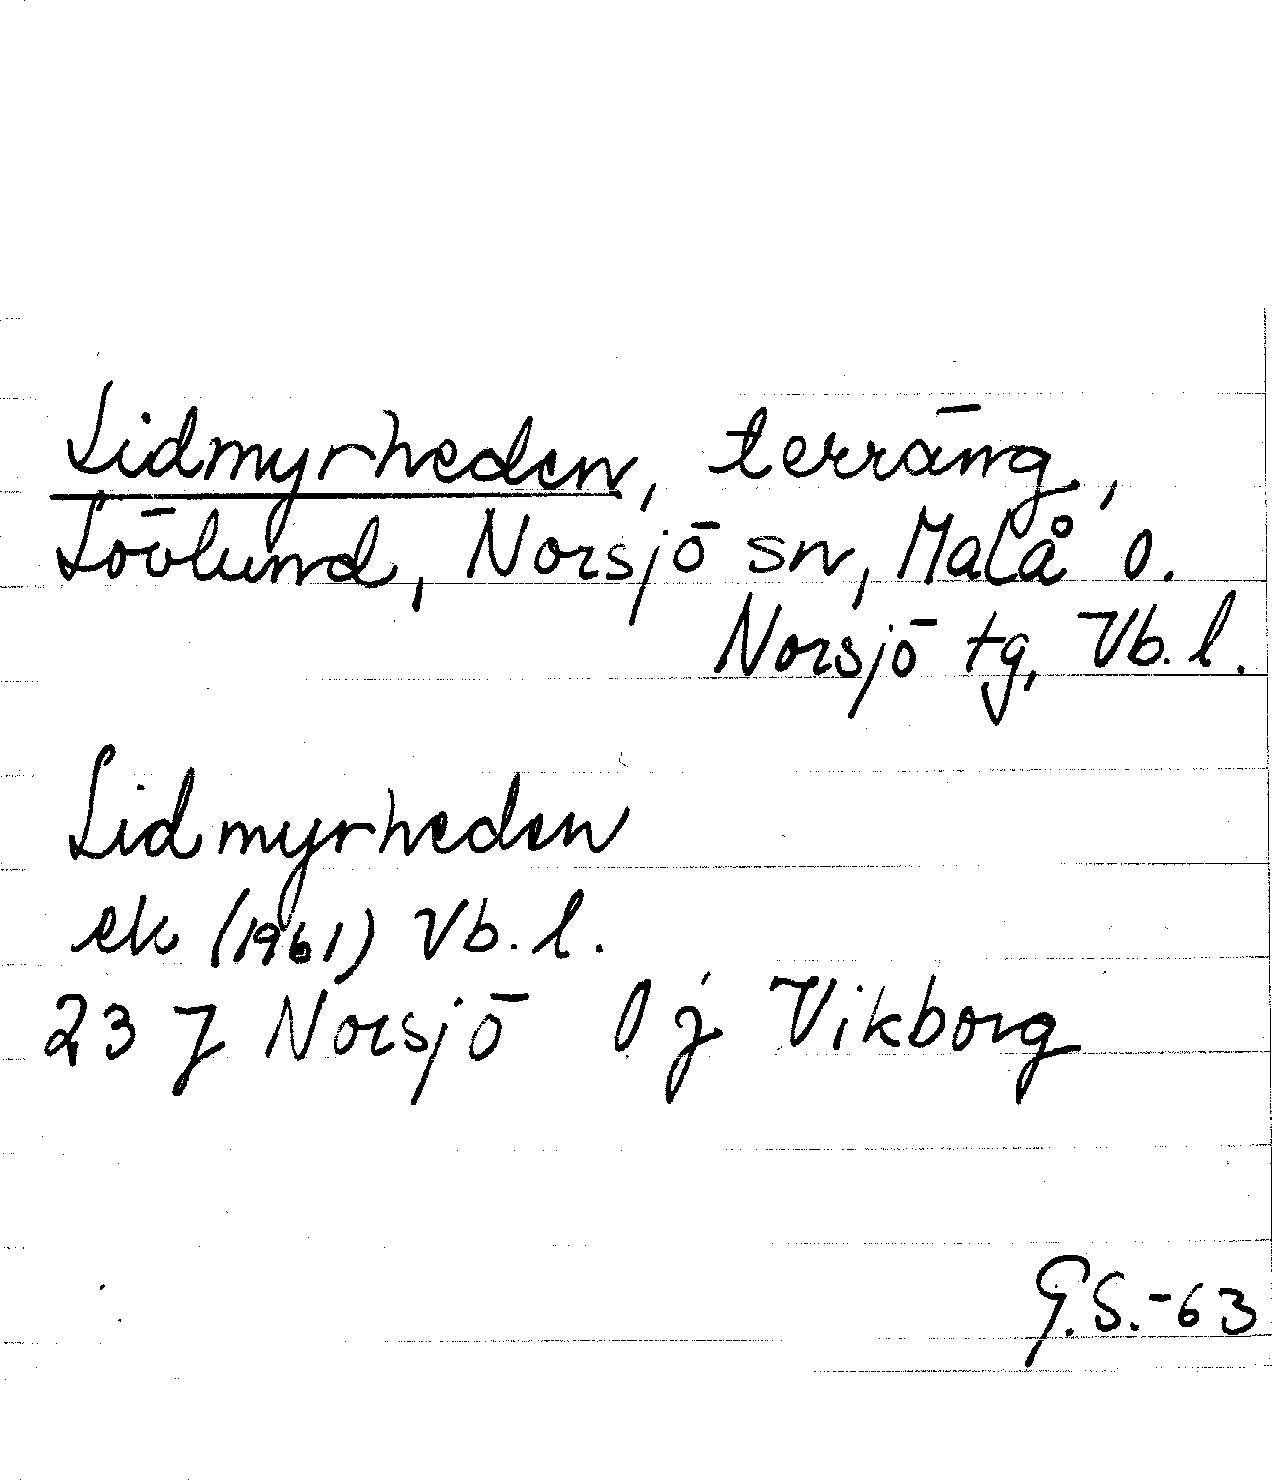 Lidmyrheden, terräng,
Lövlund, Norsjö sn, Malå o.
Norsjö tg, Vb. l.
Lidmyrheden
ek (1961) Vb. l.
23 J Norsjö 0 j Vikborg
G.S.-63